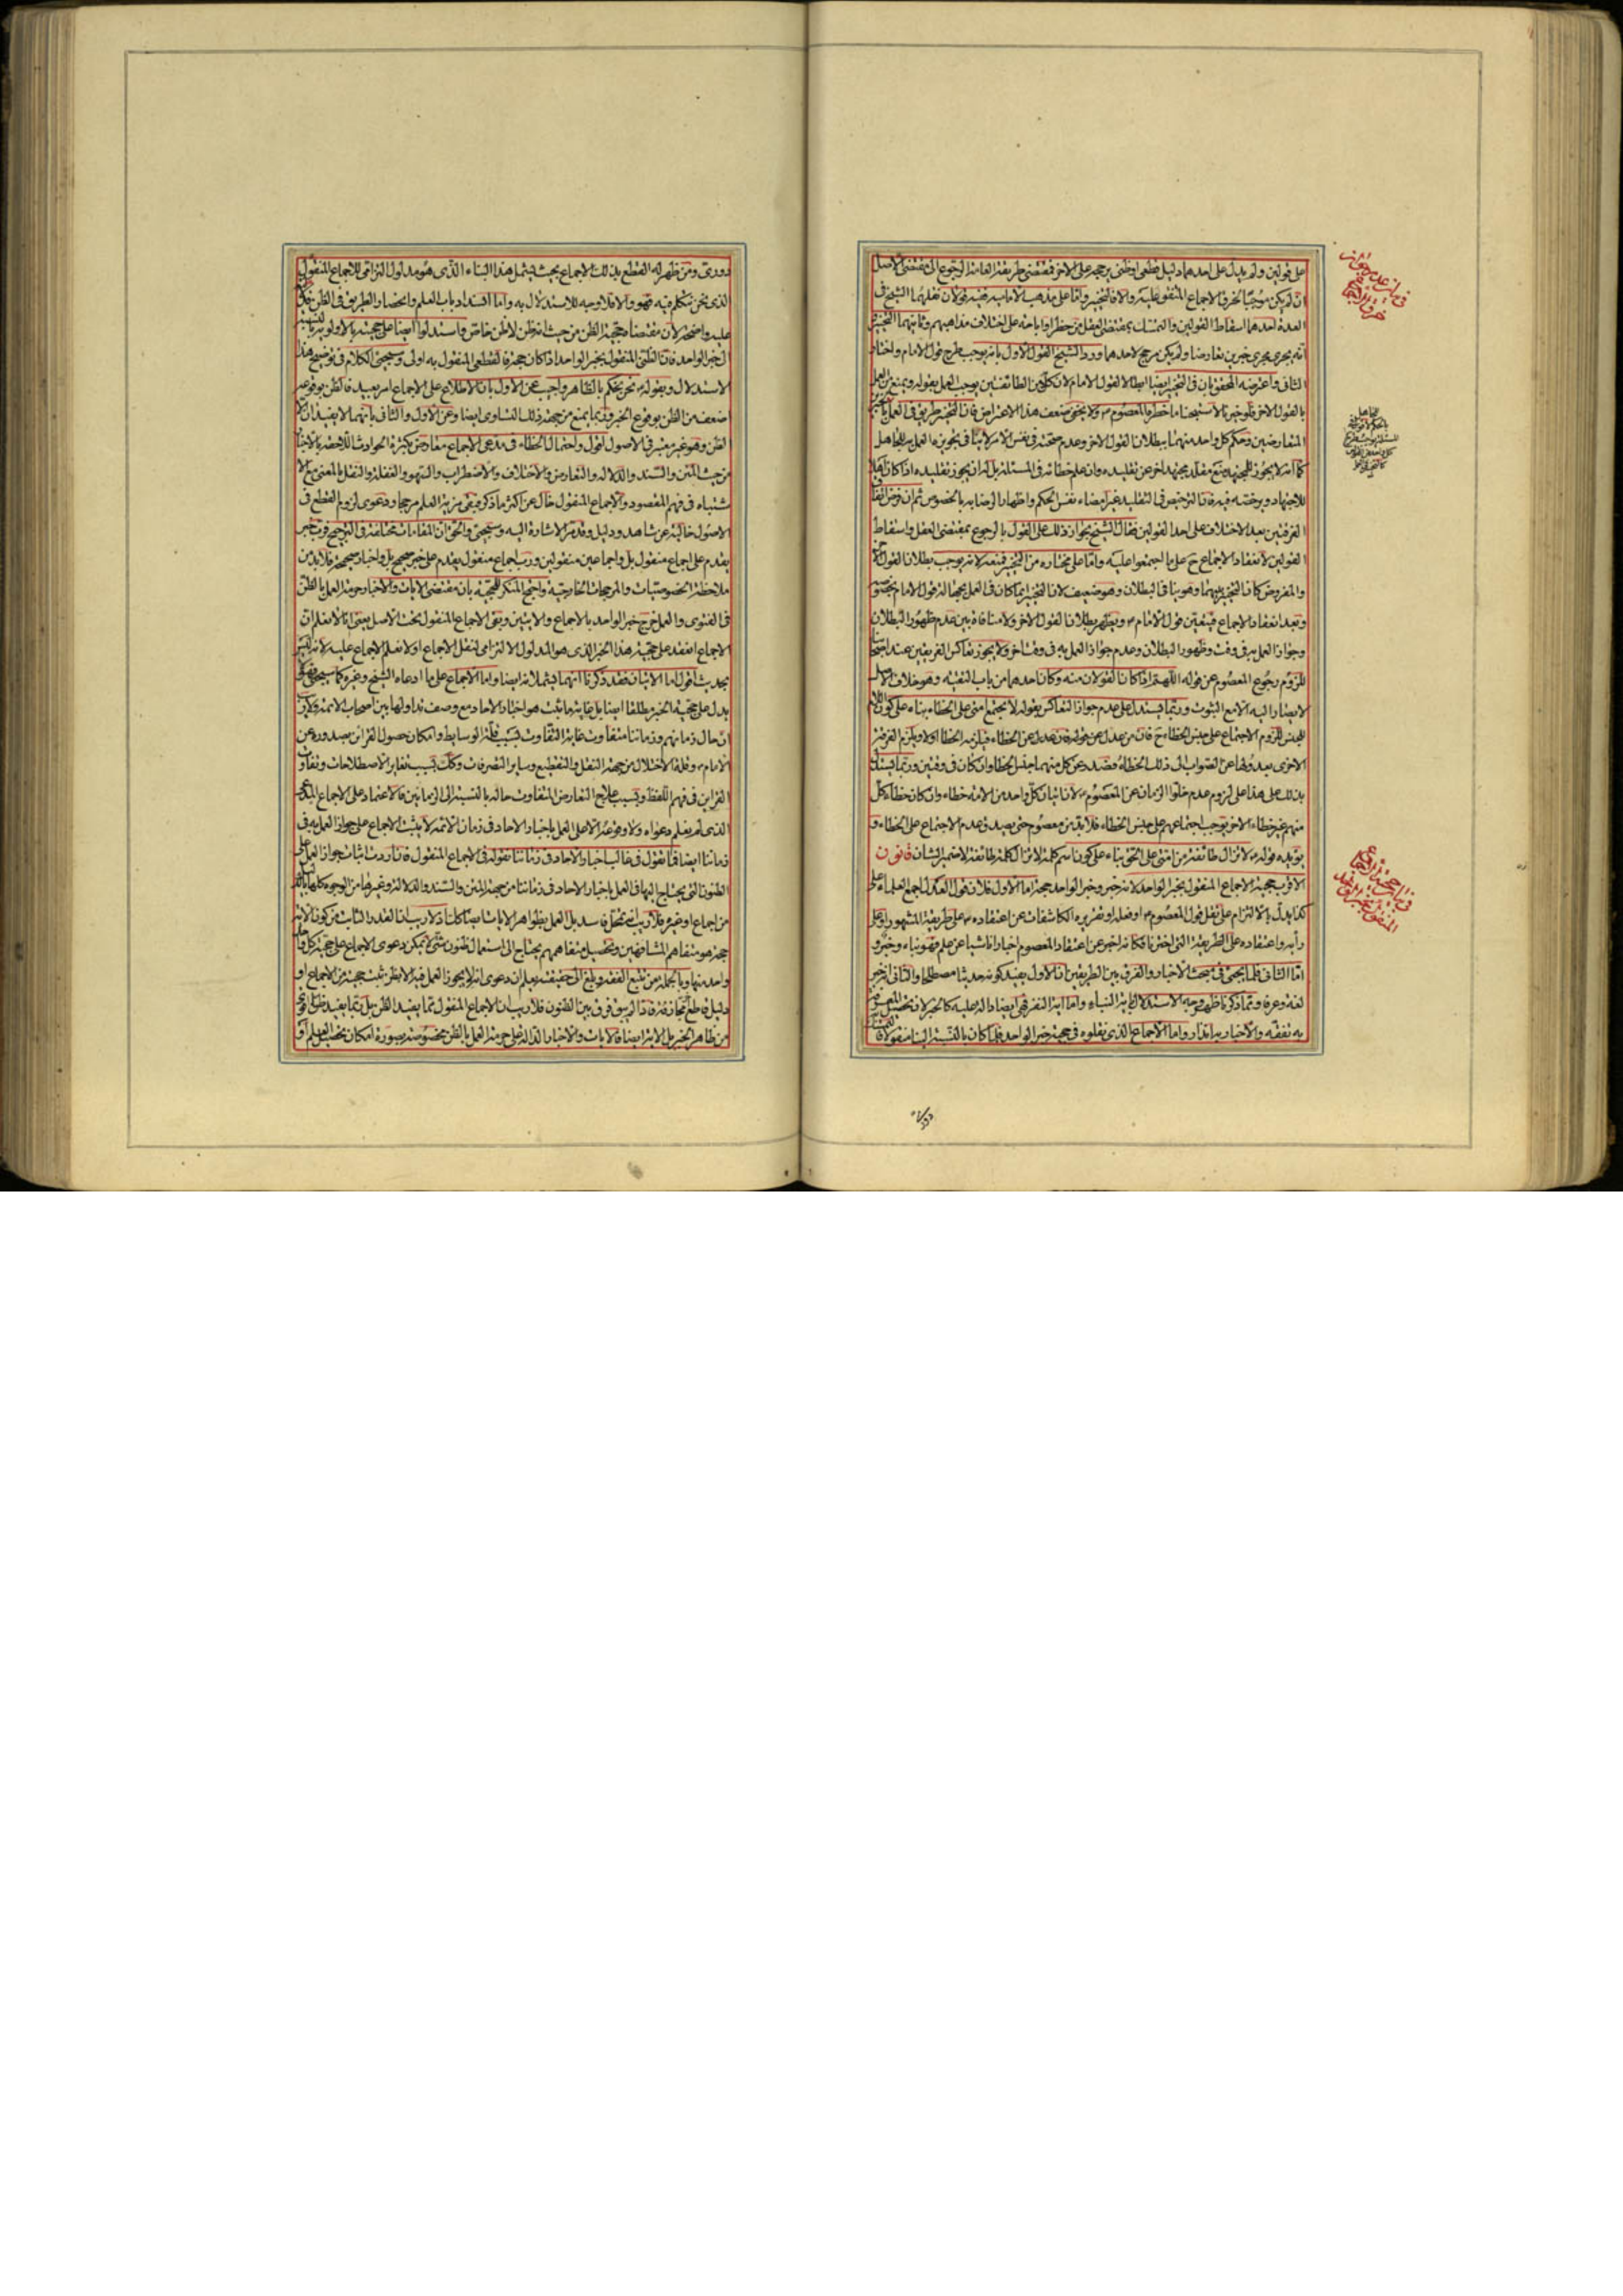 على قولين ولم يدل على احدهما دليل قطعى او ظنى يرجحه على الاخر فمقتضى طريقة العامة الرجوع الى مقتضى الاصل
ان لم يكن موجبا لخرق الاجماع المتفق عليه والا فالتخيير واما على مذهب الامامية ففيه قولان نقلهما الشيخ فى
العدة احدهما اسقاط القولين والتمسك بمقتضى العقل من حظر او اباحة على اختلاف مذاهبهم وثانيهما التخيير
انه يجرى مجرى خبرين تعارضا ولم يكن مرجح لاحدهما ورد الشيخ القول الاول بانه يوجب طرح قول الامام واختار
الثانى واعترضه المحقق بان فى التخيير ايضا ابطالا لقول الامام لان كلا من الطائفتين يوجب العمل بقوله ويمنع من العمل
بالقول الاخر فلو خيرنا لاستبحنا ما حظره المعصوم ولا يخفى ضعف هذا الاعتراض فان التخيير طريق فى العمل
المتعارضين وحكم كل واحد منهما ببطلان القول الاخر وعدم صحته فى نفس الامر لا ينافى تجويزه العمل به للجاهل
كما انه لا يجوز للمجتهد منع مقلد مجتهد اخر عن تقليده وان علم خطائه فى المسئلة بل له ان يجوز تقليده اذا كان اهلا
للاجتهاد ويرخصه فيه فان الترخيص فى التقليد غير امضاء نفس الحكم واظهار الرضا به بالخصوص ثم ان فرض اتفاق
الفرقتين بعد الاختلاف على احد القولين فقال الشيخ بجواز ذلك على القول بالرجوع بمقتضى العقل واسقاط
القولين لانعقاد الاجماع ح على ما اجتمعوا عليه واما على مختاره من التخيير فمنعه لانه يوجب بطلان القول الاخر
والمفروض كان التخيير بينهما وهو ينافى البطلان وهو ضعيف لان التخيير انما كان فى العمل لجهالة قول الامام بخصوصه
وبعد انعقاد الاجماع فيتعين قول الامام ويظهر بطلان القول الاخر ولا منافاة بين عدم ظهور البطلان
وجواز العمل به فى وقت وظهور البطلان وعدم جواز العمل به فى وقت اخر ولا يجوز تعاكس الفريقين عند اصحابنا
للزوم رجوع المعصوم عن قوله اللهم اذا كان القولان منه وكان احدهما من باب التقية وهو خلاف الاصل
لا يصار اليه الا مع الثبوت وربما يستدل على عدم جواز التعاكس بقوله لا يجتمع امتى على الخطاء بناء على كون اللام
للجنس للزوم الاجتماع على جنس الخطاء ح فان من عدل عن قوله فان عدل عن الخطاء فيلزمه الخطا اولا ويلزم الفرقة
الاخرى بعد ولها عن الصواب الى ذلك الخطاء فصدر عن كل منهما جنس الخطا وان كان فى وقتين وربما يستدل
بذلك على هذا على لزوم عدم خلو الزمان عن المعصوم لان اتيان كل واحد من الامة خطاء وان كان خطاء كل
منهم غير خطاء الاخر يوجب اجتماعهم على جنس الخطاء فلا بد من معصوم حتى يصدق عدم الاجتماع على الخطاء و
يؤيده قوله لا تزال طائفة من امتى على الحق بناء على كون اسم كلمة لا تزال كلمة طائفة لا ضمير الشان قانون
الاقرب حجية الاجماع المنقول بخبر الواحد لانه خبر وخبر الواحد حجة اما الاول فلان قول العدل اجمع العلماء على
كذا يدل بالالتزام على نقل قول المعصوم او فعله او تقريره الكاشفات عن اعتقاده على طريقة المشهور او على
رأيه واعتقاده على الطريقة التى اخترناها فكانه اخبر عن اعتقاد المعصوم اخبارا ناشيا عن علم فهو نباء وخبر و
اما الثانى فلما يجئ فى مبحث الاخبار والفرق بين الطريقين ان الاول يفيد كونه حديثا مصطلحا والثانى انه خبر
لغة وعرفا ومما ذكرنا ظهر وجه الاستدلال باية النباء واما اية النفر فهى ايضا دالة عليه كالخبر لان تحصيل المعرفة
به تفقه والاخبار به انذار واما الاجماع الذى نقلوه فى حجية خبر الواحد فلما كان بالنسبة الينا منقولا فا
ودرى ومن ظهر له القطع بذلك الاجماع بحيث يشمل هذا النباء الذى هو مدلول التزامى للاجماع المنقول
الذى نحن نتكلم فيه فهو والا فلا وجه للاستدلال به واما انسداد باب العلم وانحصار الطريق فى الظن
عليه واضحة لان مقتضاه حجية الظن من حيث انه ظن لا ظن خاص واستدلوا ايضا على حجيته بالاولوية بالنسبة
الى خبر الواحد فان الظنى المنقول بخبر الواحد اذا كان حجة فالقطعى المنقول به اولى وسيجئ الكلام فى توضيح هذا
الاستدلال وبقوله نحن نحكم بالظاهر واجيب عن الاول بان الاطلاع على الاجماع امر بعيد فالظن بوقوعه
اضعف من الظن بوقوع الخبر وربما يمنع من جهة ذلك التساوى ايضا وعن الاول والثانى بانهما لا يفيدان الا
الظن وهو غير معتبر فى الاصول اقول واحتمال الخطاء فى مدعى الاجماع معارض بكثرة الحوادث اللاحقة بالاخبار
من حيث المتن والسند والدلالة والتعارض والاختلاف والاضطراب والسهو والغفلة والنقل بالمعنى مع الا
شتباه فى فهم المقصود والاجماع المنقول خال عن اكثر ما ذكر فيبقى مزية العلم مرجحا ودعوى لزوم القطع فى
الاصول خالية عن شاهد ودليل وقد مر الاشارة اليه وسيجئ والحق ان المقامات مختلفة فى الترجيح فرب خبر
يقدم على اجماع منقول بل واجماعين منقولين ورب اجماع منقول يقدم على خبر صحيح بل واخبار صحيحة فلا بد من
ملاحظة الخصوصيات والمرجحات الخارجية واحتج المنكر للحجية بان مقتضى الايات والاخبار حرمة العمل بالظن
فى الفتوى والعمل خرج خبر الواحد بالاجماع والايتين وبقى الاجماع المنقول تحت الاصل يعنى انا لا نعلم ان
الاجماع انعقد على حجية هذا الخبر الذى هو المدلول الالتزامى لنقل الاجماع او لا نعلم الاجماع عليه لانه ليس
بحديث اقول اما الايتان فقد ذكرنا انهما يشملانه ايضا واما الاجماع على ما ادعاه الشيخ وغيره كما سيجئ فهو
يدل على حجية الخبر مطلقا ايضا بل غاية ما يثبت هو اخبار الاحاد مع وصف تداولها بين اصحاب الائمة ولا ريب
ان حال زمانهم وزماننا متفاوت غاية التفاوت بسبب قلة الوسايط وامكان حصول القرائن بصدوره عن
الامام وقلة الاختلال من جهة النقل والتقطيع وساير التصرفات وكذلك بسبب تغاير الاصطلاحات وتفاوت
القراين فى فهم اللفظ وبسبب علاج التعارض المتفاوت حاله بالنسبة الى الزمانين فالاعتماد على الاجماع المدعى
الذى لم يعلم دعواه ولا وقوعه الا على العمل باخبار الاحاد فى زمان الائمة لا يثبت الاجماع على جواز العمل به فى
زماننا ايضا فما نقول فى غالب اخبار الاحاد فى زماننا نقوله فى الاجماع المنقول فان اردت اثبات جواز العمل على
الظنون التى يحتاج اليها فى العمل باخبار الاحاد فى زماننا من جهة المتن والسند والدلالة وغيرها من الوجوه كلها
من اجماع او غيره فلا ريب انه تمحل فاسد بل العمل بظواهر الايات ايضا كذلك اذ لا ريب ان القدر الثابت من كون الاية
حجة هو متفاهم المشافهين وتحصيل متفاهمهم يحتاج الى استعمال ظنون شتى لا يمكن دعوى الاجماع على حجية كل
واحد منها وبالجملة من تتبع الفقه وبلغ الى حقيقته يعلم ان دعوى انه لا يجوز العمل فيه الا بظن ثبت حجيته من الاجماع او
دليل قاطع مجازفة فاذا لم يبق فرق بين الظنون فلا ريب ان الاجماع المنقول مما يفيد الظن بل ربما يفيد ظنا اقوى
من ظاهر الخبر بل الاية ايضا فالايات والاخبار الدالة على حرمة العمل بالظن مخصوصة بصورة امكان تحصيل العلم او